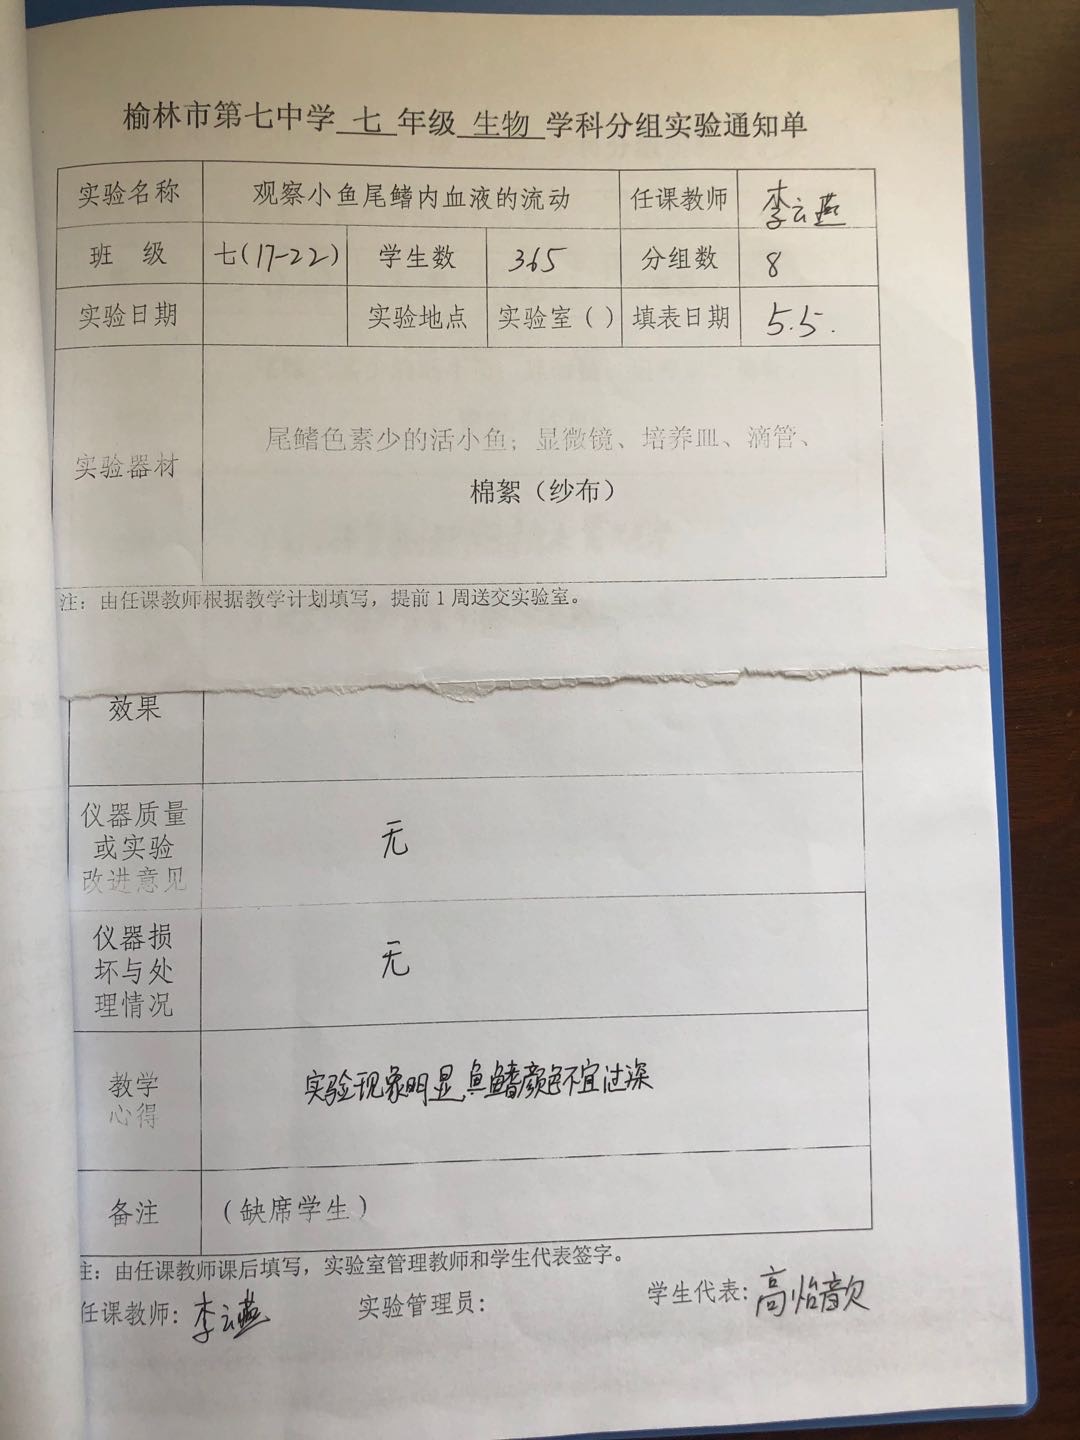 榆林市第七中学 七 年级 生物 学科分组实验通知单
实验名称 观察小鱼尾鳍内血液的流动 任课教师 李云燕
班 级 七(17-22) 学生数 365 分组数 8
实验日期 实验地点 实验室() 填表日期 5.5.
实验器材
尾鳍色素少的活小鱼；显微镜、培养皿、滴管、
棉絮（纱布）
注：由任课教师根据教学计划填写，提前1周送交实验室。
效果
仪器质量
或实验
改进意见
无
仪器损
坏与处
理情况
无
教学
心得
实验现象明显,鱼鳍颜色不宜过深
备注 （缺席学生）
注：由任课教师课后填写，实验室管理教师和学生代表签字。
任课教师：李云燕 实验管理员： 学生代表：高怡歆